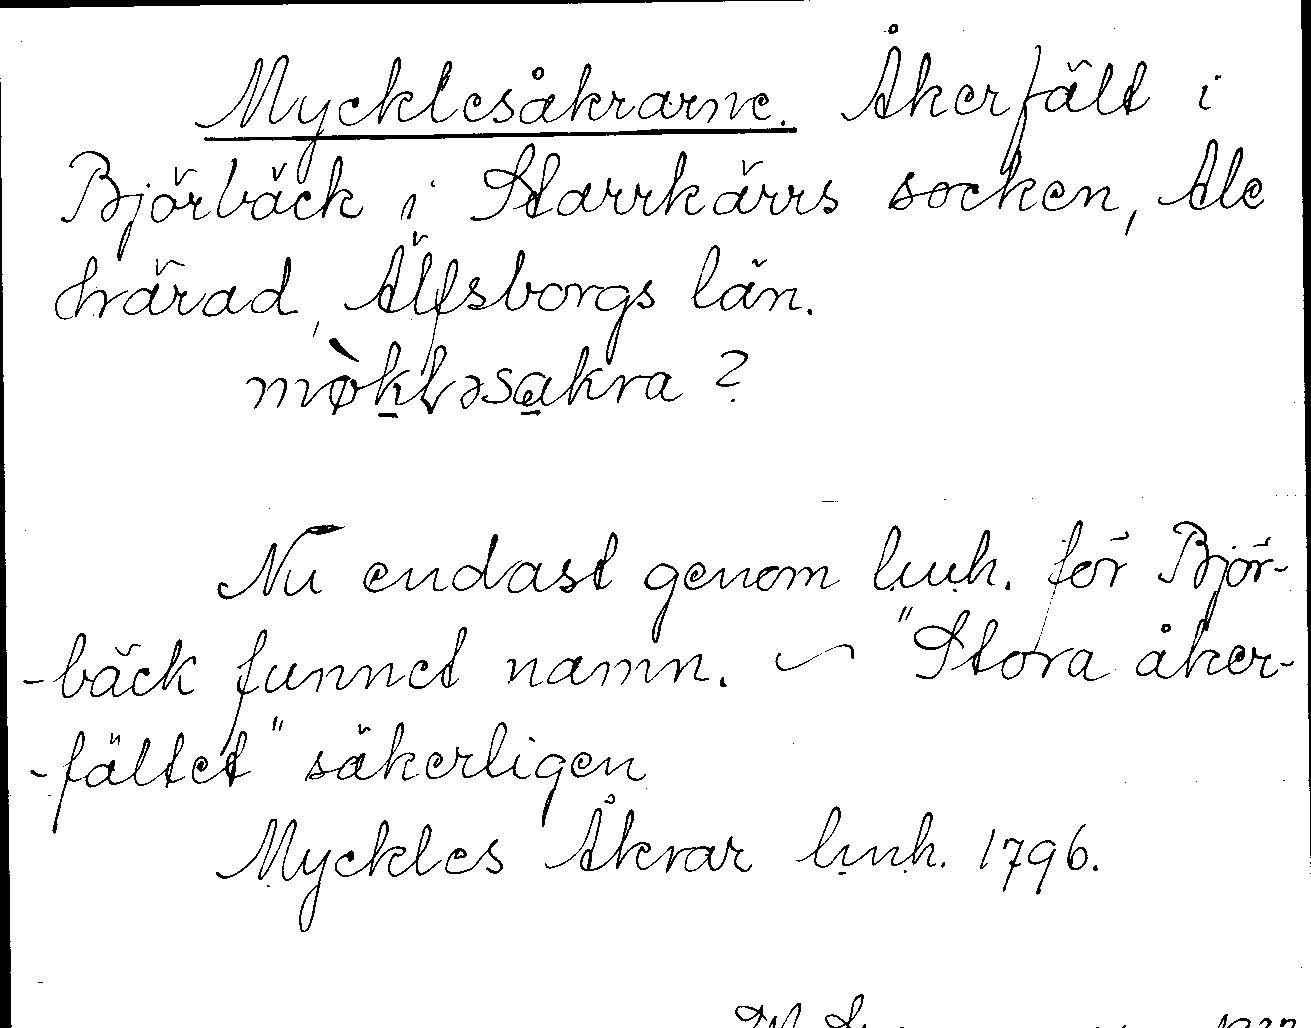 Mycklesåkrarne. Åkerfält i
Björbäck i Starrkärrs socken, Ale
härad, Älfsborgs län.
mø̀kləsakra ?
Nu endast genom l.m.h. för Björ-
-bäck funnet namn. ~ "Stora åker-
-fältet" säkerligen
Myckles Åkrar l.m.h. 1796.